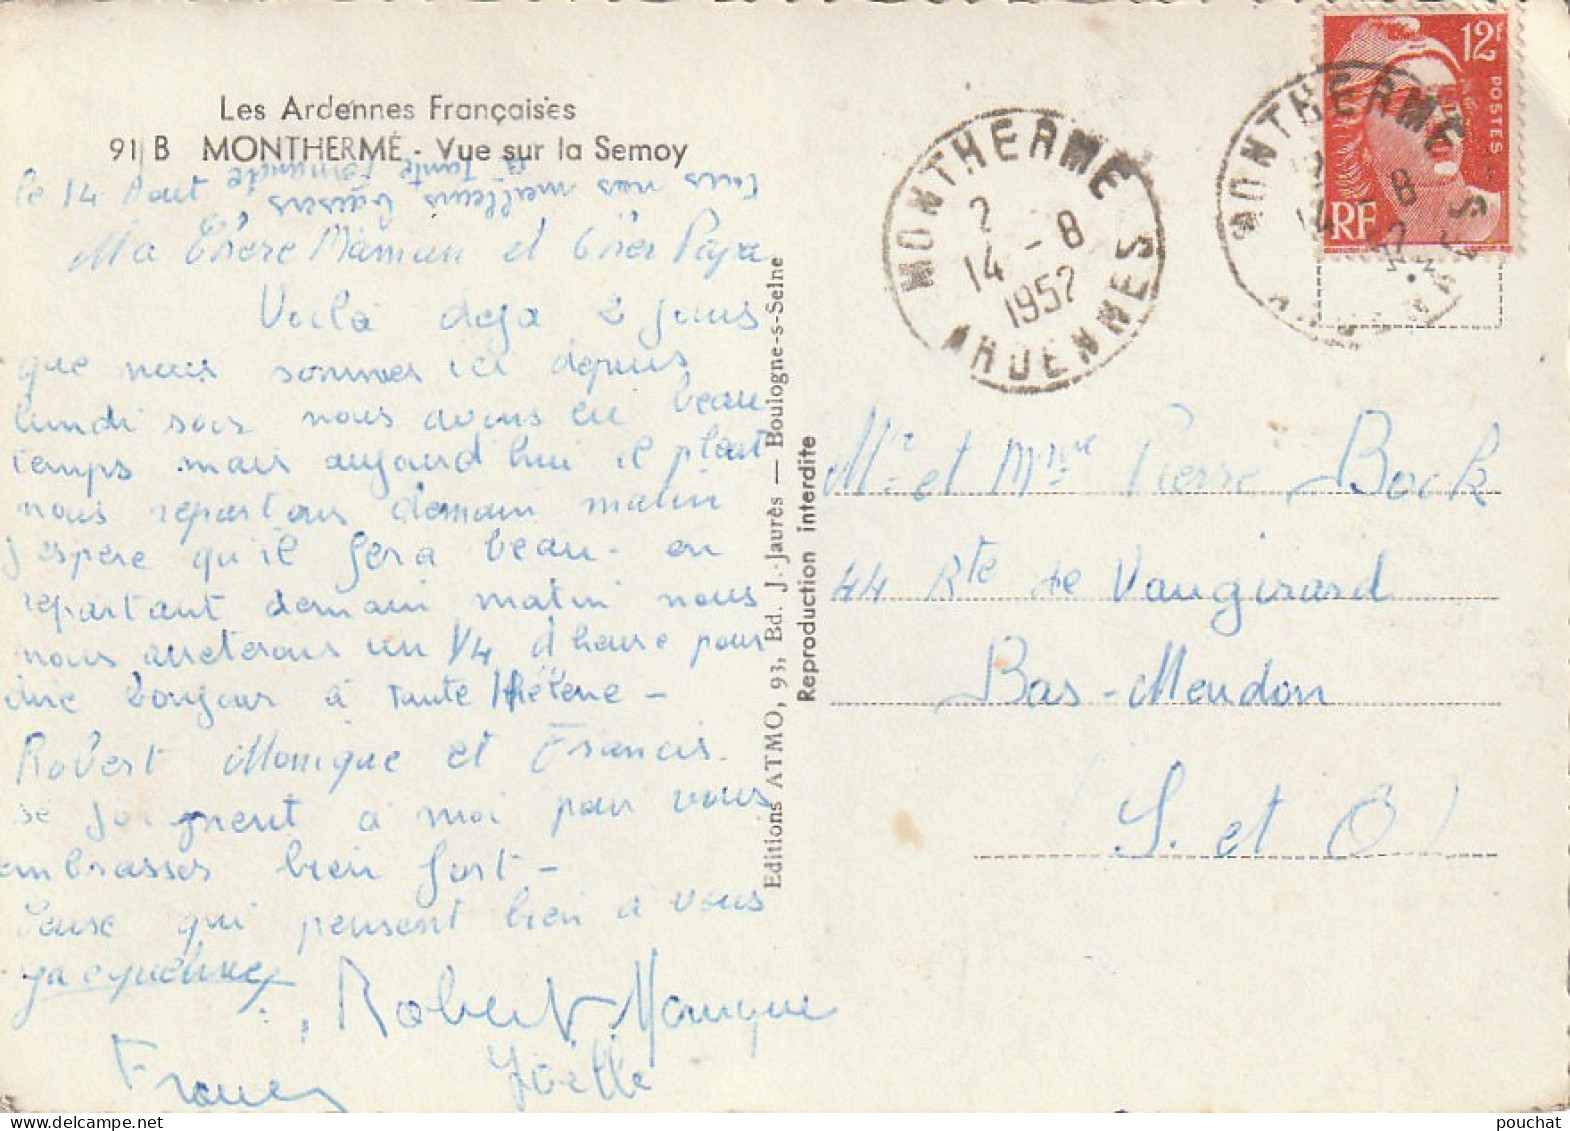 Les Ardennes Françaises
91 B MONTHERMÉ - Vue sur la Semoy
et Tante Fernande
tous nos meilleurs baisers
le 14 Aout
Ma Chère Maman et Cher Papa
Voilà deja 2 jours
que nous sommes ici depuis
lundi soir nous avons eu beau
temps mais aujourd'hui il pleut
nous repartons demain matin
j'espere qu'il fera beau - en
repartant demain matin nous
nous arreterons un 1/4 d'heure pour
dire bonjour à tante Hélène -
Robert Monique et Francis.
se joignent a moi pour vous
embrasser bien fort -
qui pensent bien à vous
Jacqueline
Robert Monique
Francis Joëlle
Editions ATMO, 93, Bd. J.-Jaurès — Boulogne-s-Seine
Reproduction interdite
MONTHERME
2
14 - 8
1952
ARDENNES
12F
POSTES
RF
MONTHERME
14 - 8
Mr et Mme Pierre Bock
44 Rte de Vaugirard
Bas-Meudon
(S. et O)
pouchat